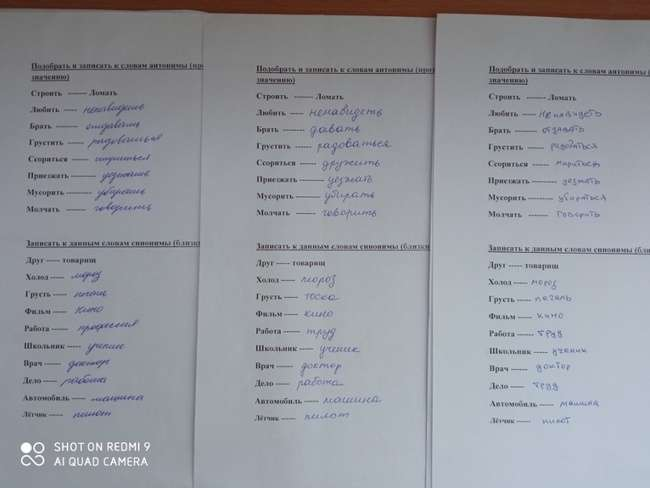 Подобрать и записать к словам антонимы (про
значению)
Строить ------- Ломать
Любить ----- ненавидеть
Брать ----- отдавать
Грустить ----- радоваться
Ссориться -----
Приезжать ----- уезжать
Мусорить ----- убирать
Молчать ----- говорить
Записать к данным словам синонимы (близки
Друг ----- товарищ
Холод ----- мороз
Грусть -----
Фильм ----- кино
Работа ----- профессия
Школьник ----- ученик
Врач ----- доктор
Дело ----- работа
Автомобиль ----- машина
Лётчик ----- пилот
SHOT ON REDMI 9
AI QUAD CAMERA
Подобрать и записать к словам антонимы (про
значению)
Строить ------- Ломать
Любить ----- ненавидеть
Брать ----- давать
Грустить ----- радоваться
Ссориться ----- дружить
Приезжать ----- уезжать
Мусорить ----- убирать
Молчать ----- говорить
Записать к данным словам синонимы (близки
Друг ----- товарищ
Холод ----- мороз
Грусть ----- тоска
Фильм ----- кино
Работа ----- труд
Школьник ----- ученик
Врач ----- доктор
Дело ----- работа
Автомобиль ----- машина
Лётчик ----- пилот
Подобрать и записать к словам антонимы (
значению)
Строить ------- Ломать
Любить ----- ненавидеть
Брать -----
Грустить -----
Ссориться ----- мириться
Приезжать ----- уезжать
Мусорить ----- убираться
Молчать ----- говорить
Записать к данным словам синонимы (бли
Друг ----- товарищ
Холод ----- мороз
Грусть ----- печаль
Фильм ----- кино
Работа ----- труд
Школьник ----- ученик
Врач ----- доктор
Дело ----- труд
Автомобиль ----- машина
Лётчик -----